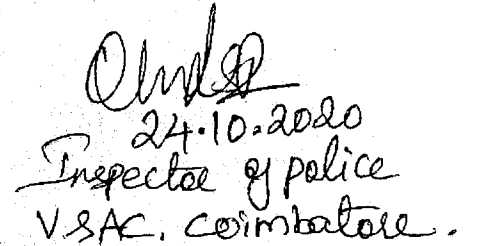 24.10.2020
Inspector of police
V&AC, Coimbatore.